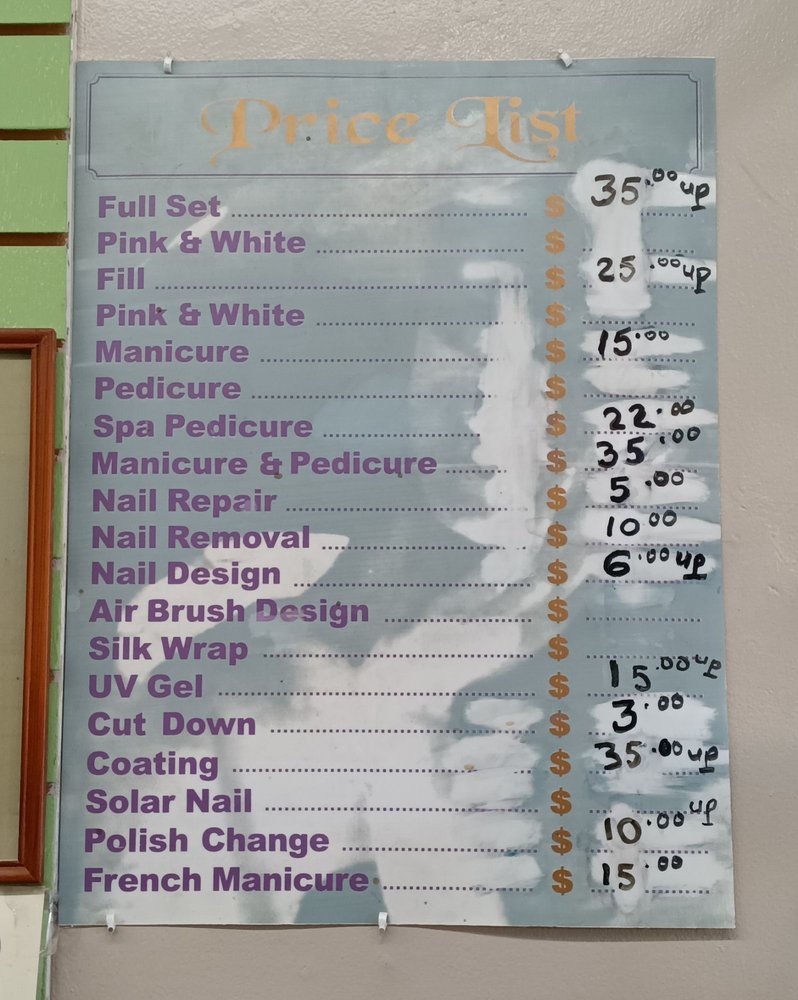 Price List
Full Set $ 35.00 up
Pink & White $
Fill $ 25.00 up
Pink & White $
Manicure $ 15.00
Pedicure $
Spa Pedicure $ 22.00
Manicure & Pedicure $ 35.00
Nail Repair $ 5.00
Nail Removal $ 10.00
Nail Design $ 6.00 up
Air Brush Design $
Silk Wrap $
UV Gel $ 15.00 up
Cut Down $ 3.00
Coating $ 35.00 up
Solar Nail $
Polish Change $ 10.00 up
French Manicure $ 15.00